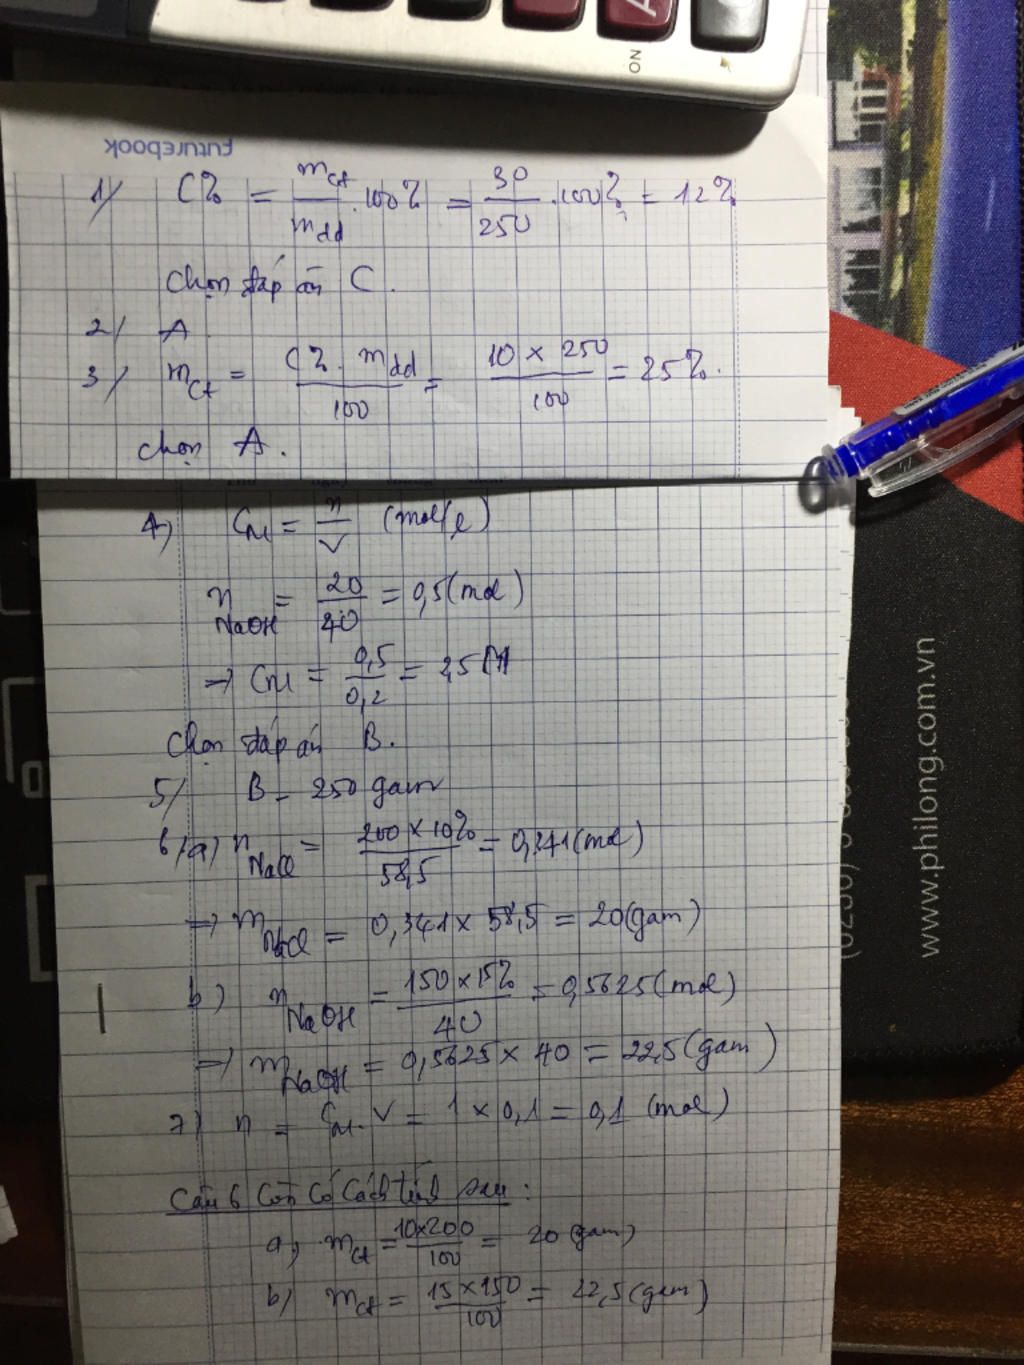 NO
futurebook
1/ C% = mct/mdd . 100% = 30/250 . 100% = 12%
Chọn đáp án C.
2/ A
3/ mct = C%. mdd/100 = 10 x 250/100 = 25%.
chọn A.
4) CM = n/V (mol/l)
nNaOH = 20/40 = 0,5 (mol)
→ CM = 0,5/0,2 = 2,5 M
Chọn đáp án B.
5/ B - 250 gam
6/ a) nNaCl = 200 x 10%/58,5 = 0,341 (mol)
→ mNaCl = 0,341 x 58,5 = 20 (gam)
b) nNaOH = 150 x 15%/40 = 0,5625 (mol)
→ mNaOH = 0,5625 x 40 = 22,5 (gam)
7) n = CM. V = 1 x 0,1 = 0,1 (mol)
Câu 6 còn có cách tính sau :
a, mct = 10x200/100 = 20 (gam)
b/ mct = 15 x 150/100 = 22,5 (gam)
www.philong.com.vn